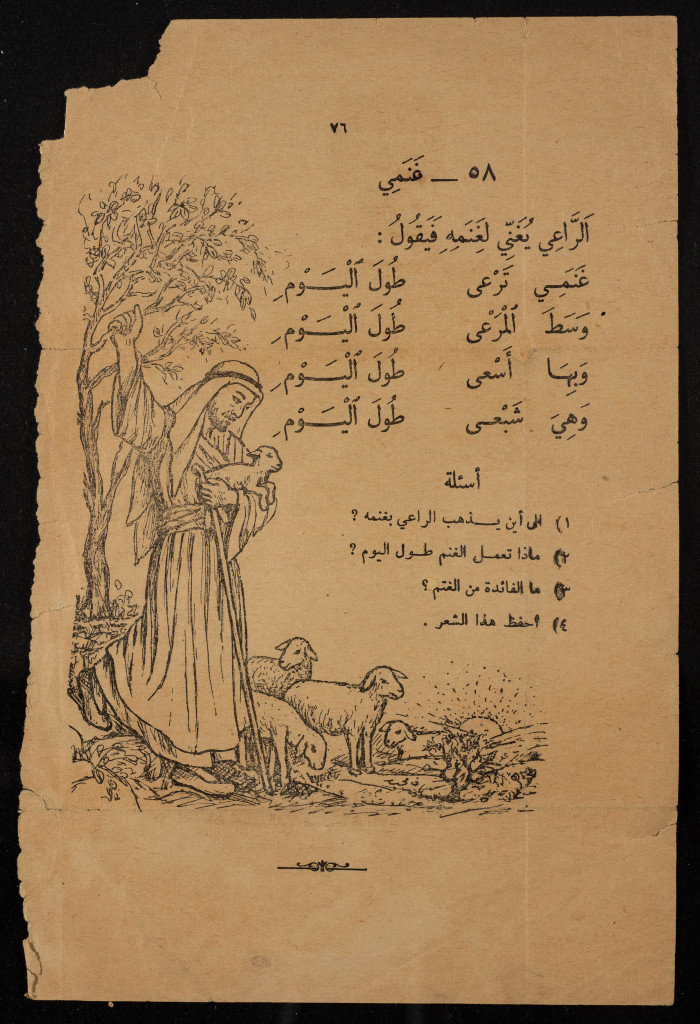 ٧٦
٥٨ ـ غَنَمِي
اَلرَّاعِي يُغَنِّي لِغَنَمِهِ فَيَقُولُ :
غَنَمِـي تَرْعى طُولَ ٱلْيَـــوْمِ
وَسَطَ ٱلْمَرْعى طُولَ ٱلْيَـــوْمِ
وَبِهَا أَسْعى طُولَ ٱلْيَـــوْمِ
وَهِيَ شَبْعـى طُولَ ٱلْيَـــوْمِ
أسئلة
١) الى أين يــذهب الراعي بغنمه ؟
٢) ماذا تعمـل الغنم طـول اليوم ؟
٣) ما الفائدة من الغتم ؟
٤) احفظ هذا الشعر .